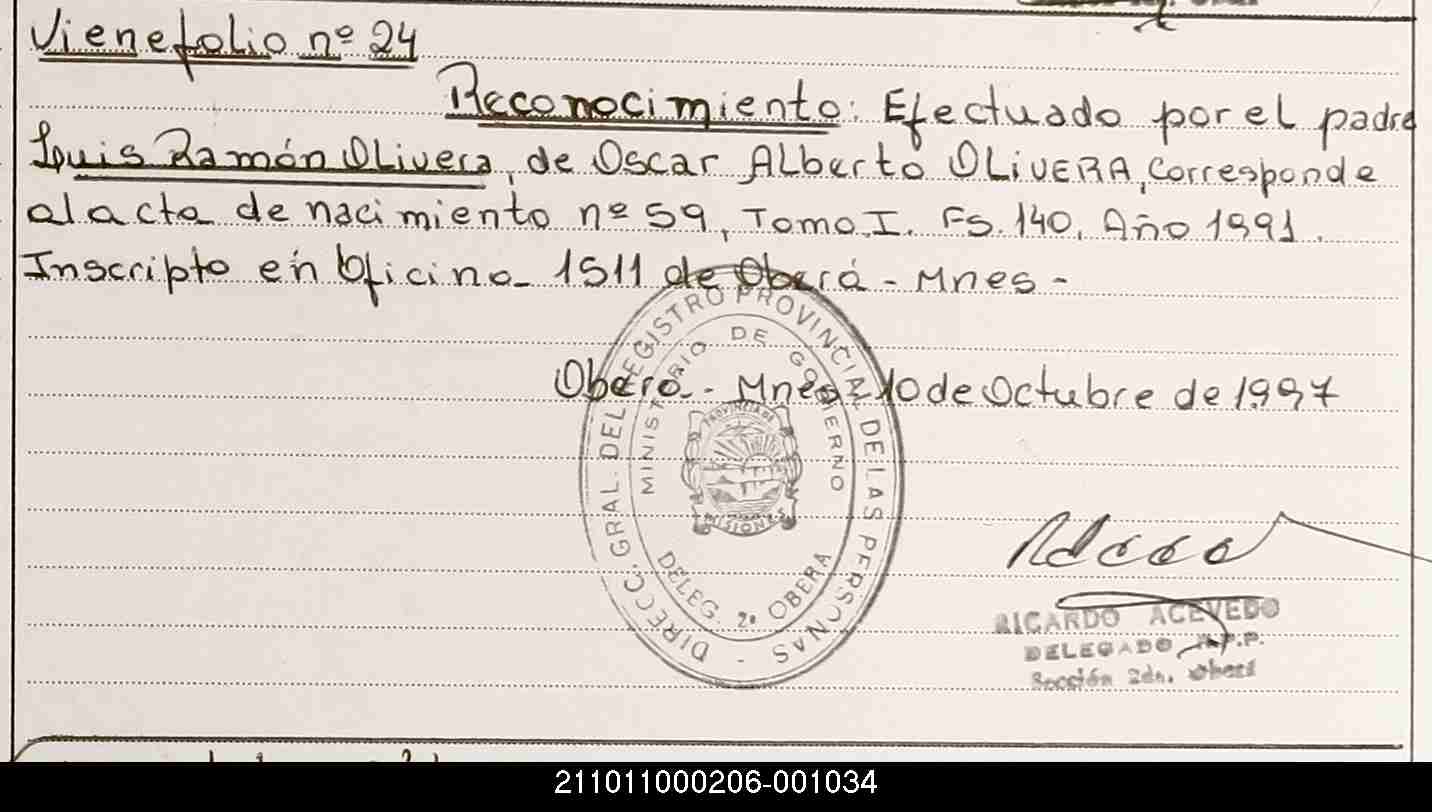 Viene folio nº 24
Reconocimiento: Efectuado por el padre
Luis Ramón Olivera, de Oscar Alberto OLIVERA, Corresponde
al acta de nacimiento nº 59, Tomo I. Fs. 140. Año 1991.
Inscripto en Oficina 1511 de Oberá - Mnes -
Oberá - Mnes 10 de Octubre de 1997
DIRECC. GRAL. DEL REGISTRO PROVINCIAL DE LAS PERSONAS -
MINISTERIO DE GOBIERNO
PROVINCIA DE
MISIONES
DELEG. 2ª OBERA
RICARDO ACEVEDO
DELEGADO R.P.P.
Sección 2da. Oberá
211011000206-001034